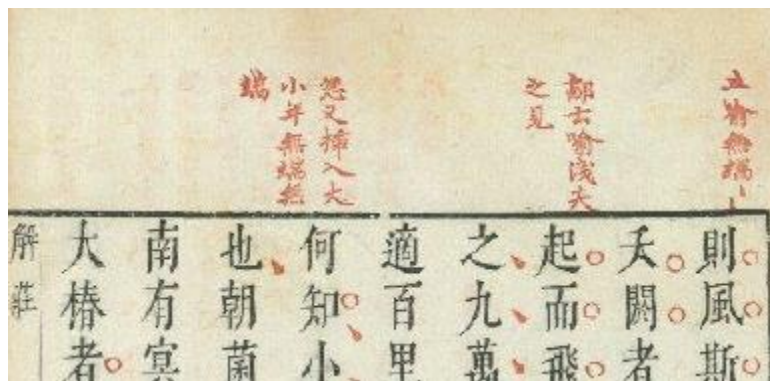 喻無端
云喻淺夫
之見
忽又挿入大
小年無端無
端
則風斯
夭閼者
起而飛
之九萬
適百里
何知小
也朝菌
南有冥
大椿者
解莊